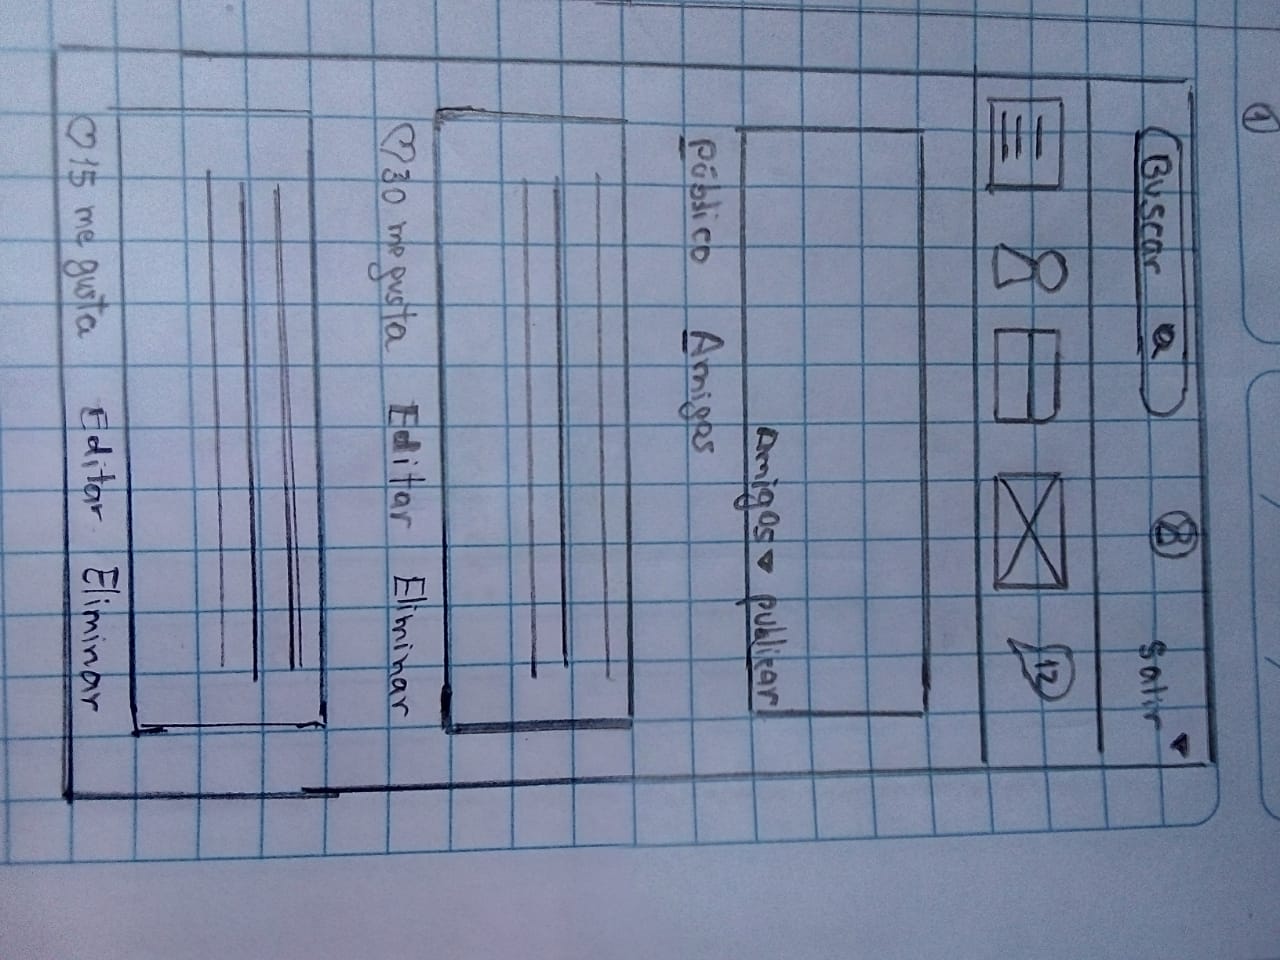 1
Buscar Salir
12
Amigos publicar
público Amigas
30 me gusta Editar Eliminar
15 me gusta Editar Eliminar